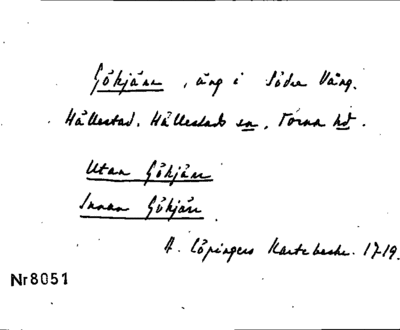 Gökjäne, äng i Södra Vång.
Hällestad, Hällestads sn, Torna hd.
Utan Gökjäne
Innan Gökjäne
A. Cöpingers Kartebeskr. 1719.
Nr 8051